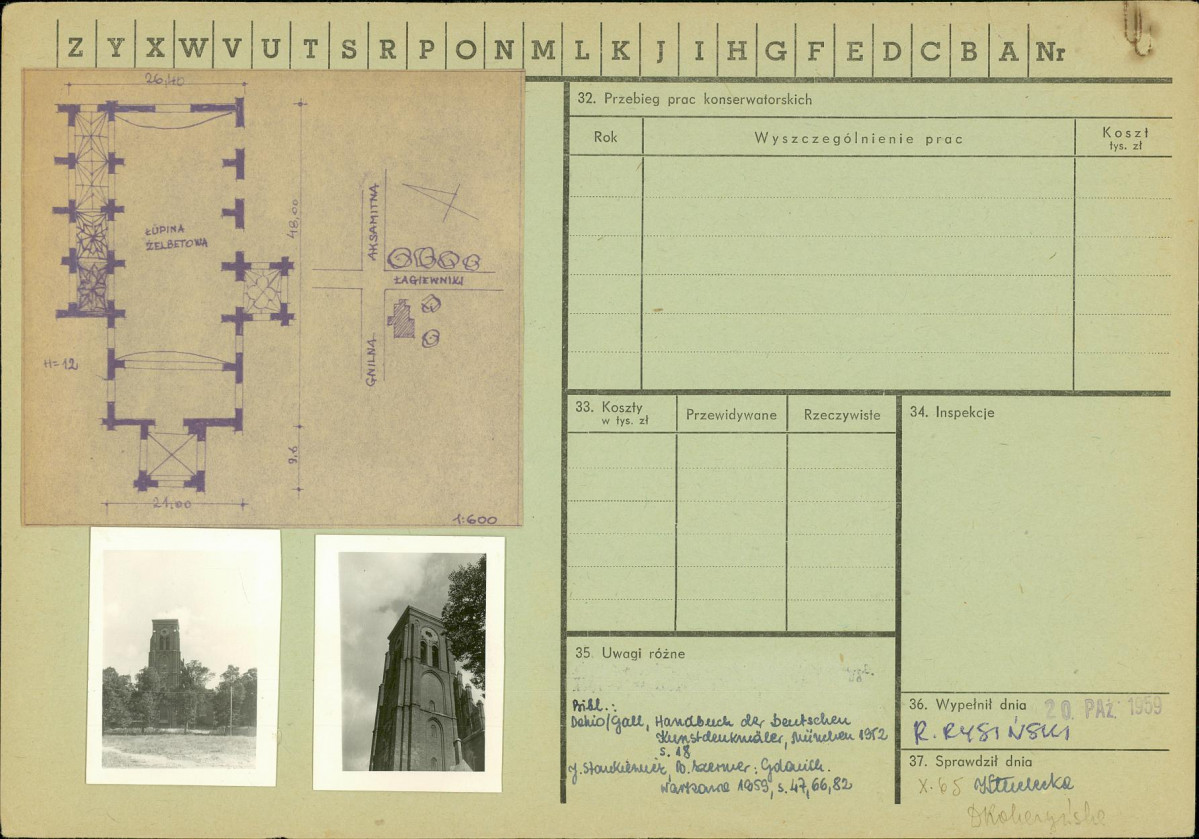 Z Y X W V U T S R P O N M L K J I H G F E D C B A Nr
26,40
ŁUPINA
ŻELBETOWA
48,00
AKSAMITNA
ŁAGIEWNIKI
GNILNA
H=12
9.6
21,00
1:600
32. Przebieg prac konserwatorskich
Rok
Wyszczególnienie prac
Koszt
tys. zł
33. Koszty
w tys. zł
Przewidywane
Rzeczywiste
34. Inspekcje
35. Uwagi różne
Bibl.:
Dehio/Gall, Handbuch der Deutschen
Kunstdenkmäler, München 1952
s. 18
J. Stankiewicz, B. Szermer: Gdańsk.
Warszawa 1959, s. 47, 66, 82
36. Wypełnił dnia
20. PAŹ. 1959
R. RYSIŃSKI
37. Sprawdził dnia
X. 65